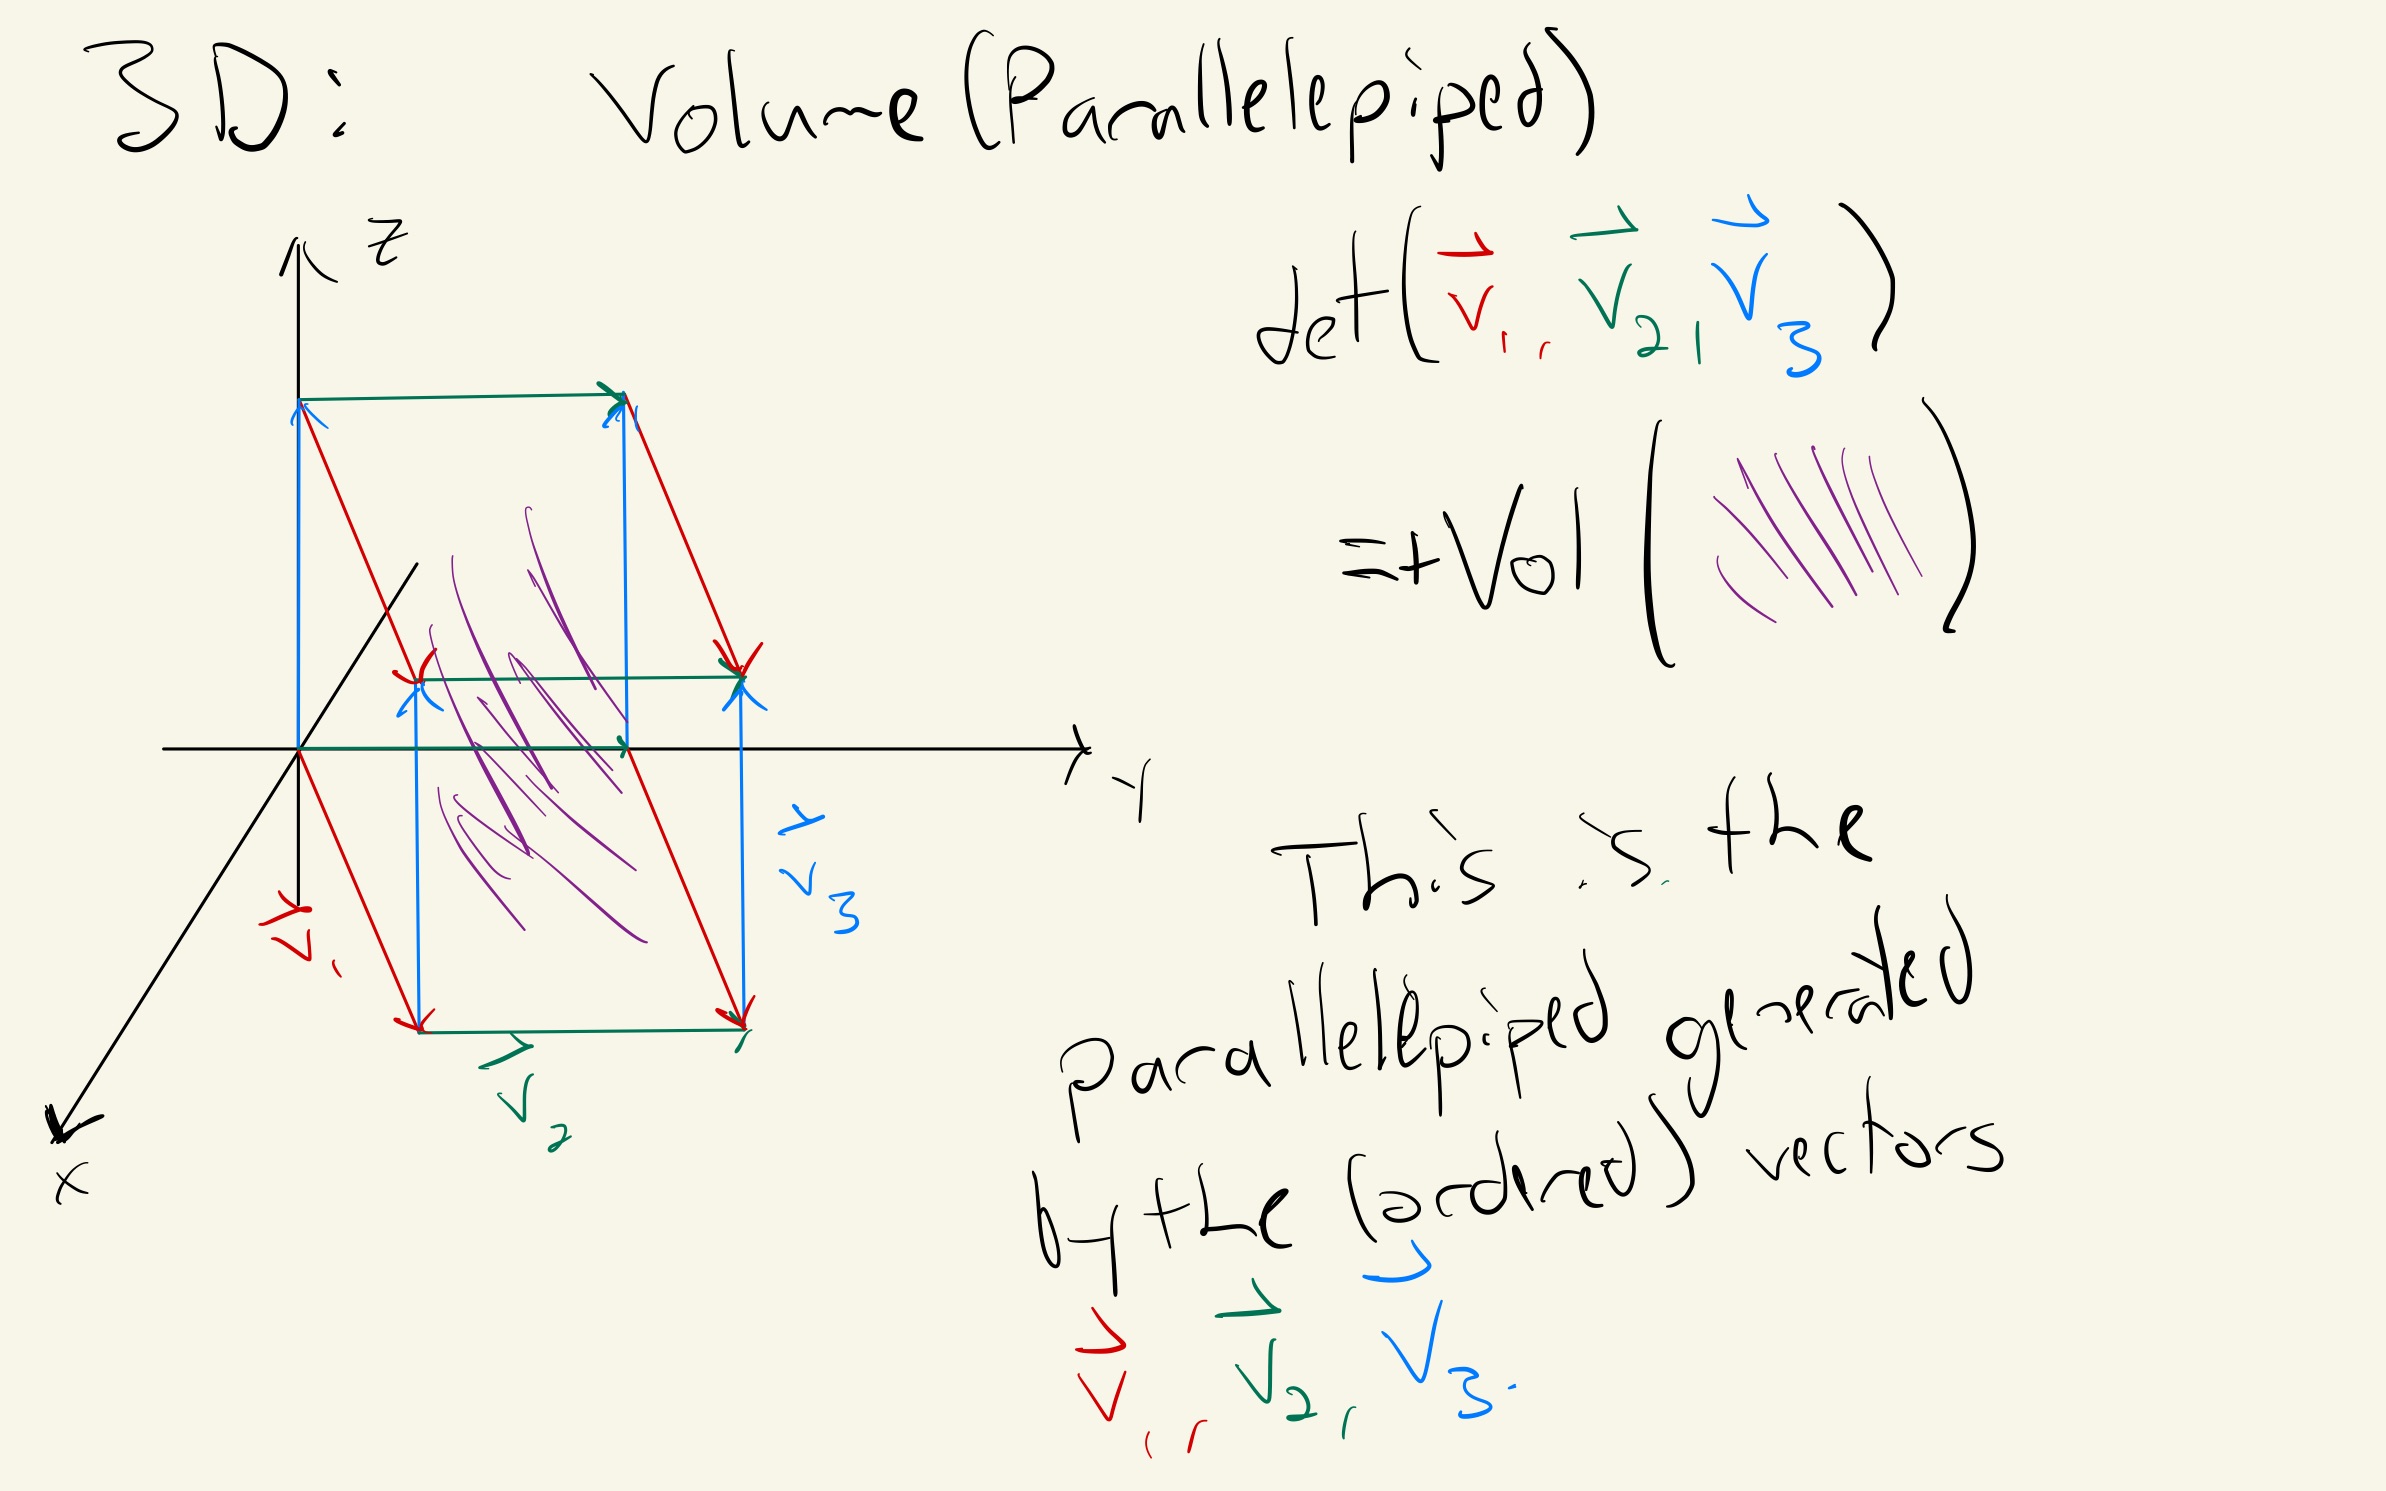 3D: Volume(Parallelepiped)
z
det(v⃗₁, v⃗₂, v⃗₃)
=+Vol( )
y
This is the
parallelepiped generated
by the (ordred) vectors
v⃗₁, v⃗₂, v⃗₃.
v⃗₃
v⃗₁
v⃗₂
x